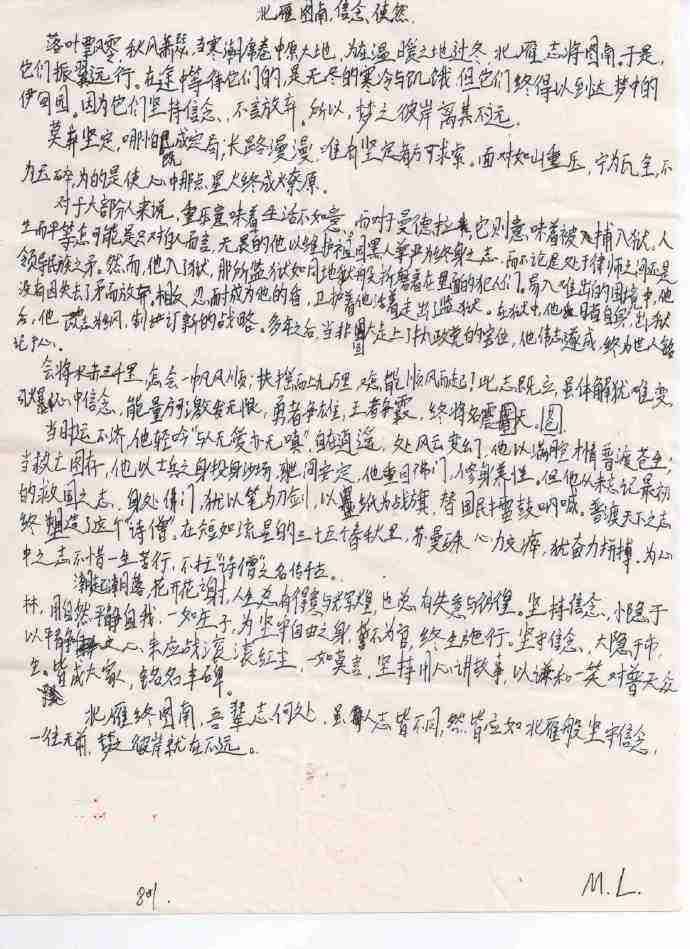 北雁图南,信念使然
落叶飘零,秋风萧瑟,当寒潮席卷中原大地,为在温暖之地过冬,北雁志将图南。于是,
他们振翼远行。在途中等待他们的,是无尽的寒冷与饥饿,但他们终得以到达梦中的
伊甸园。因为他们坚持信念、不言放弃。所以,梦之彼岸离其不远。
莫弃坚定,哪怕已成定局,长路漫漫,唯有坚定每方可求索。面对如山重压,宁为瓦全,不
为玉碎,为的是使心中那点星火终成燎原。
对于大部分人来说,重压意味着生活不如意。而对于曼德拉,它则意味着被捕入狱。人
生而平等亦可能是只对白人而言,无畏的他以维护祖国黑人尊严为终身之志,
领导民族之矛。然而,他入了狱,那所监狱如同地狱般折磨着在里面的犯人们。
没有因失去了矛而放弃,相反,忍耐成为他的盾,卫护着他活着走出了监狱。在狱中,他
会,他制进订新的战略。多年之后,当非国大走上了执政党的宫位,他伟志遂成,终为世人铭
记于心。
会将水击三千里,怎会一帆风顺;扶摇而上九万里,难能顺风而起!此志既立,具体解犹难变。
心中信念,能量方激发无恨,勇者争雄,王者争霸,终将名震寰天。
当时运不济,他轻吟“以无爱亦无嗔”,自在逍遥,处风云变幻,他以满腔才情普渡苍生;
当救亡图存,他以士兵之身投身沙场,世间安定,他重回佛门,修身养性。但他从未忘记最初
的救国之志,身处佛门,犹以笔为刀剑,以纸为战旗,替国民擂鼓呐喊。普渡天下之志
终塑造了这个“诗僧”。在短如流星的三十五个春秋里,苏曼殊心力交瘁,犹奋力拼搏,为心
中之志不惜一生苦行,不枉“诗僧”之名传千古。
潮起潮落,花开花谢,人生总有得意与辉煌,也总有失意与彷徨。坚持信念、小隐于
林,用自然平静自我,一如庄子,为坚守自由之身,誓不为官,终生践行。坚守信念、大隐于市,
以平静之心,来应战滚滚红尘,一如莫言,坚持用心讲故事,以谦和一笑对普天众
生。皆成大家,铭名丰碑。
北雁终图南,吾辈志何处,虽人志皆不同,然皆应如北雁般坚守信念,
一往无前,梦之彼岸就在不远。
801.
M.L.